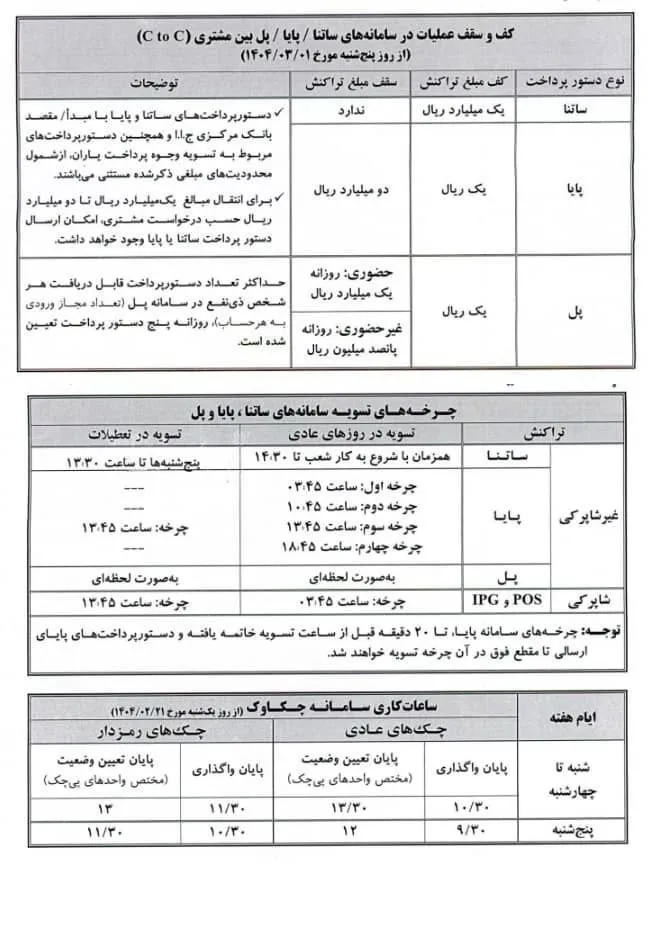 کف و سقف عملیات در سامانه‌های ساتنا / پایا / پل بین مشتری (C to C)
(از روز پنج‌شنبه مورخ ۱۴۰۴/۰۳/۰۱)
نوع دستور پرداخت
کف مبلغ تراکنش
سقف مبلغ تراکنش
توضیحات
ساتنا
یک میلیارد ریال
ندارد
✓ دستورپرداخت‌های ساتنا و پایا با مبدأ/ مقصد
بانک مرکزی ج.ا.ا و همچنین دستورپرداخت‌های
مربوط به تسویه وجوه پرداخت یاران، ازشمول
محدودیت‌های مبلغی ذکرشده مستثنی می‌باشند.
✓ برای انتقال مبالغ یک‌میلیارد ریال تا دو میلیارد
ریال حسب درخواست مشتری، امکان ارسال
دستور پرداخت ساتنا یا پایا وجود خواهد داشت.
پایا
یک ریال
دو میلیارد ریال
پل
یک ریال
حضوری: روزانه
یک میلیارد ریال
غیرحضوری: روزانه
پانصد میلیون ریال
حداکثر تعداد دستورپرداخت قابل دریافت هر
شخص ذی‌نفع در سامانه پل (تعداد مجاز ورودی
به هرحساب)، روزانه پنج دستور پرداخت تعیین
شده است.
چرخه‌های تسویه سامانه‌های ساتنا ، پایا و پل
تراکنش
تسویه در روزهای عادی
تسویه در تعطیلات
غیرشاپرکی
ساتنا
همزمان با شروع به کار شعب تا ۱۴:۳۰
پنج‌شنبه‌ها تا ساعت ۱۳:۳۰
پایا
چرخه اول: ساعت ۰۳:۴۵
---
چرخه دوم: ساعت ۱۰:۴۵
---
چرخه سوم: ساعت ۱۳:۴۵
چرخه: ساعت ۱۳:۴۵
چرخه چهارم: ساعت ۱۸:۴۵
---
پل
به‌صورت لحظه‌ای
به‌صورت لحظه‌ای
شاپرکی
POS و IPG
چرخه: ساعت ۰۳:۴۵
چرخه: ساعت ۱۳:۴۵
توجه: چرخه‌های سامانه پایا، تا ۲۰ دقیقه قبل از ساعت تسویه خاتمه یافته و دستورپرداخت‌های پایای
ارسالی تا مقطع فوق در آن چرخه تسویه خواهند شد.
ایام هفته
ساعات‌کاری سامانه چکاوک (از روز یک‌شنبه مورخ ۱۴۰۴/۰۲/۲۱)
چک‌های عادی
چک‌های رمزدار
شنبه تا
چهارشنبه
پایان واگذاری
پایان تعیین وضعیت
(مختص واحدهای پی‌چک)
پایان واگذاری
پایان تعیین وضعیت
(مختص واحدهای پی‌چک)
۱۰/۳۰
۱۳/۳۰
۱۱/۳۰
۱۳
پنج‌شنبه
۹/۳۰
۱۲
۱۰/۳۰
۱۱/۳۰